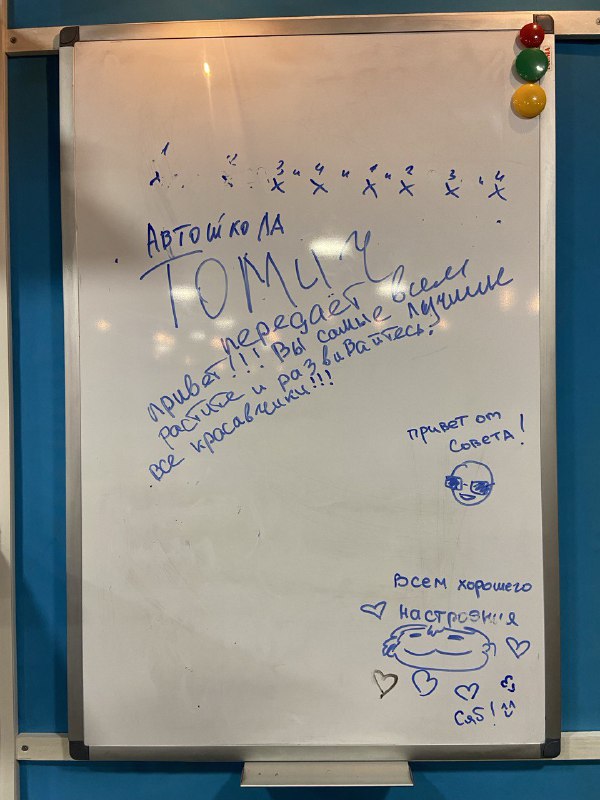 1 2 3 " 4 " 1 " 2 3 " 4
х х х х х х
Автошкола
Томич
передаёт всем
привет!!! Вы самые лучшие
растите и развивайтесь.
все красавчики!!!
привет от
Совета!
Всем хорошего
настроения